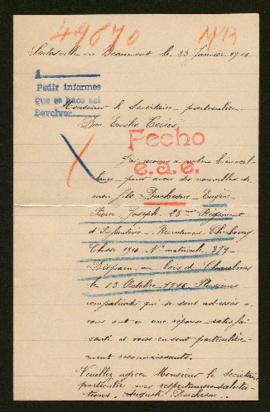 49670
Beaumont le 23 Janvier 1916
1
Pedir informes
Que se hace así
Devolver
Monsieur le Secrétaire particulier
Don Emilio
Fecho
e.a.e.
J'ai recours à votre bienveil-
lance pour avoir des nouvelles de
mon fils Duchesne Eugène
Pierre Joseph 25 Régiment
d'Infanterie Recrutement Cherbourg
Classe 1916 N° matricule 327
Disparu au bois de Chaulnes
le 13 Octobre 1916 Plusieurs
compatriotes qui se sont adressés à
vous ont eu une réponse satisfai
sante et vous en sont particulière
ment reconnaissants.
Veuillez agréer Monsieur le Secrétaire
particulier mes respectueuses saluta
tions. Auguste Duchesne.